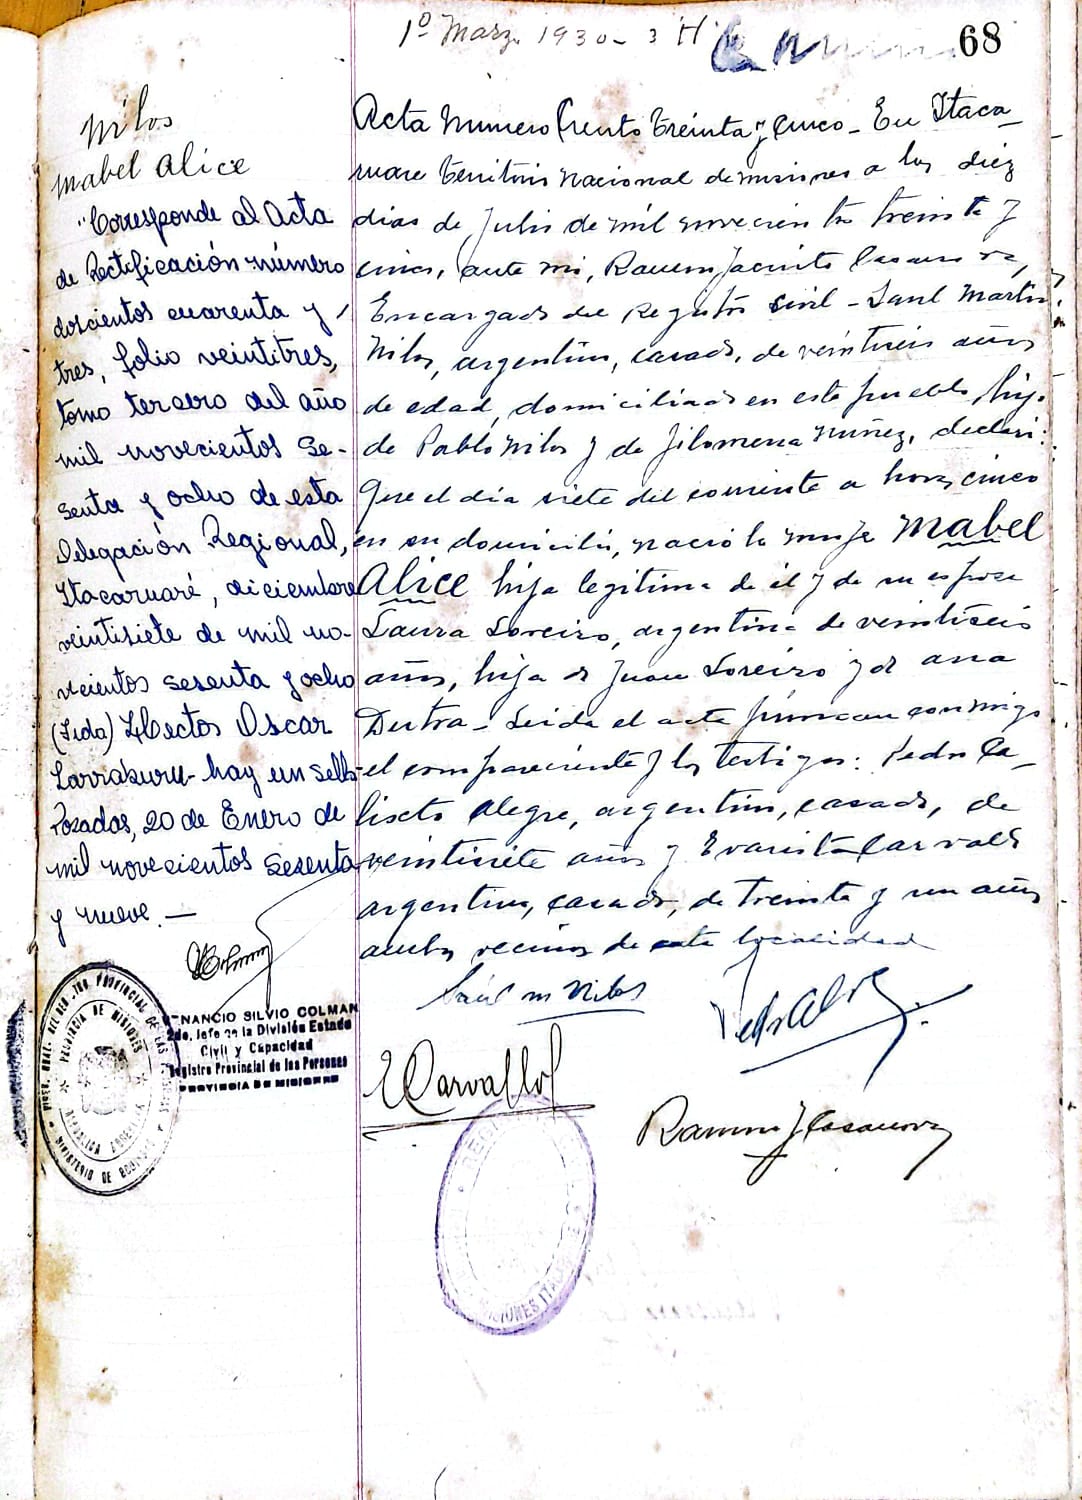 1º Marz. 1930 - 3 H
68
Nilos
Mabel Alice
"Corresponde al Acta
de Rectificación número
doscientos cuarenta y
tres, folio veintitres,
tomo tercero del año
mil novecientos se-
senta y ocho de esta
Delegación Regional,
Itacaruaré, diciembre
veintisiete de mil no-
vecientos sesenta y ocho
(Fdo) Hector Oscar
Larraburu - hay un sello
Posadas, 20 de Enero de
mil novecientos sesenta
y nueve. —
NANCIO SILVIO COLMAN
2do. Jefe de la División Estado
Civil y Capacidad
Registro Provincial de las Personas
PROVINCIA DE MISIONES
PROVINCIA DE MISIONES
REPUBLICA ARGENTINA
Acta Numero Ciento Treinta y Cinco - En Itaca-
ruare Territorio Nacional de Misiones a los diéz
dias de Julio de mil novecientos treinta y
cinco, ante mi, Ramon Jacinto Casanova,
Encargado del Registro Civil - Saul Martin
Nilos, argentino, casado, de veintiseis años
de edad, domiciliado en este pueblo, hijo
de Pablo Nilos y de Filomena Nuñez, declaró:
Que el día siete del corriente a horas cinco
en su domicilio, nació la mujer Mabel
Alice hija legitima de él y de su esposa
Laura Loreiro, argentina de veintiseis
años, hija de Juan Loreiro y de Ana
Dutra - Leida el acta firman conmigo
el compareciente y los testigos: Pedro Ca-
listo Alegre, argentino, casado, de
veintisiete años y Evaristo Carvallo
argentino, casado, de treinta y un años
ambos vecinos de esta localidad
Saúl M Nilos
E Carvallo
Ramon J Casanova
MISIONES